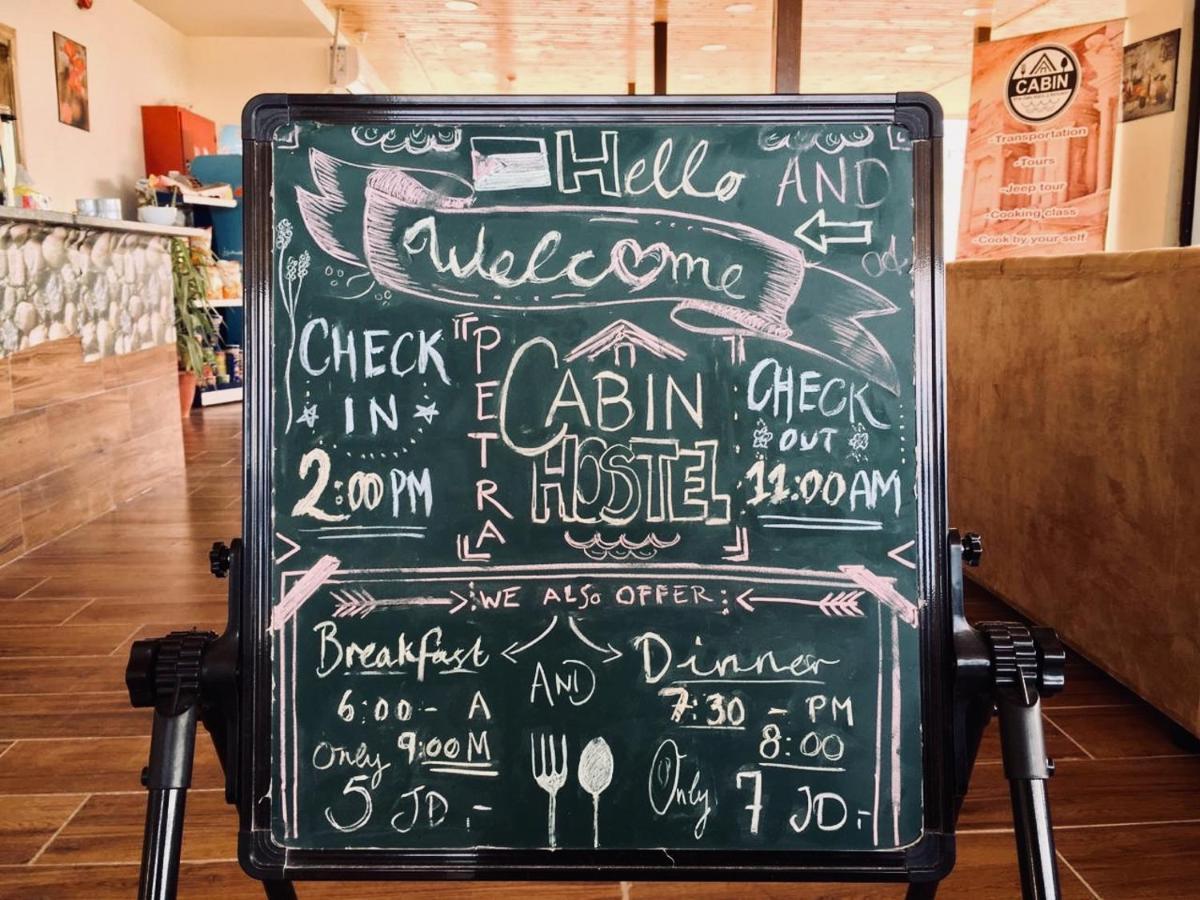 Hello AND
Welcome
CHECK
IN
2:00 PM
PETRA
CABIN
HOSTEL
CHECK
OUT
11:00 AM
WE ALSO OFFER:
Breakfast
6:00 - A
9:00 M
Only
5 JD -
AND
Dinner
7:30 - PM
8:00
Only 7 JD -
CABIN
-Transportation
-Tours
-Jeep tour
-Cooking class
-Cook by your self